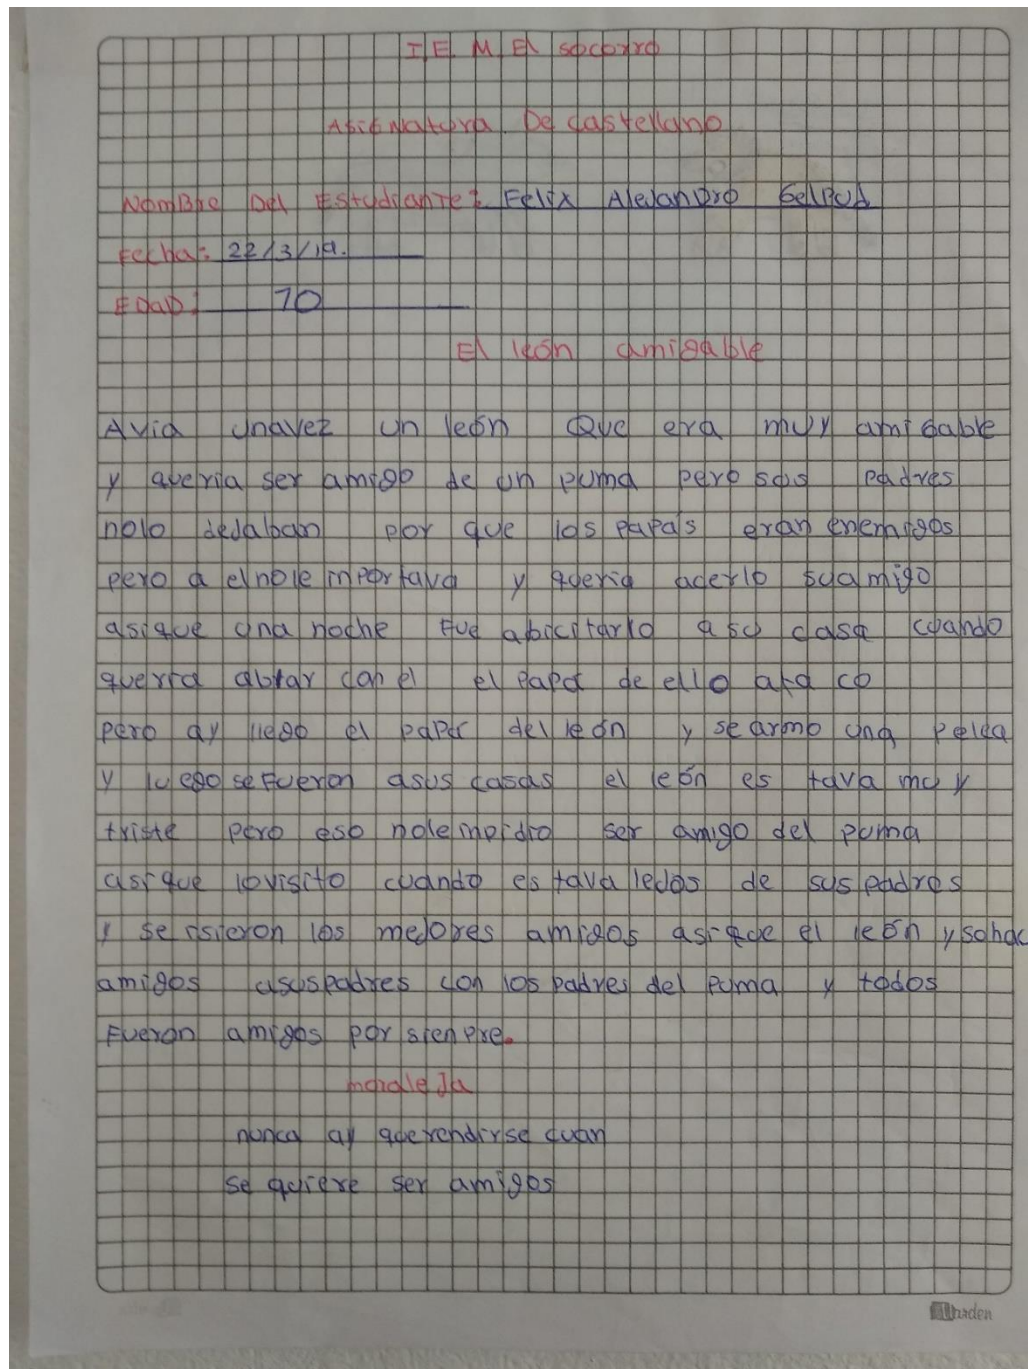 I.E.M El socorro
Asignatura De castellano
Nombre Del Estudiante: Felix Alejandro Gelpud
Fecha: 22/3/19.
EDaD: 10
El león amigable
Avia unavez un león Que era muy amigable
y queria ser amigo de un puma pero sus padres
nolo dejaban por que los papás eran enemigos
pero a elnole inportava y queria acerlo suamigo
asique una noche fue abicitarlo asu casa cuando
queria ablar con el el papá de ello ata co
pero ay llego el papá del león y se armo una pelea
y luego sefueron asus casas el león es tava muy
triste pero eso noleinpidio ser amigo del puma
asique lovisito cuando es tava lejos de sus padres
y se isieron los mejores amigos asique el león
amigos asuspadres con los padres del puma y todos
Fueron amigos por sienpre.
moraleja
nunca ay querendirse cuan
se quiere ser amigos